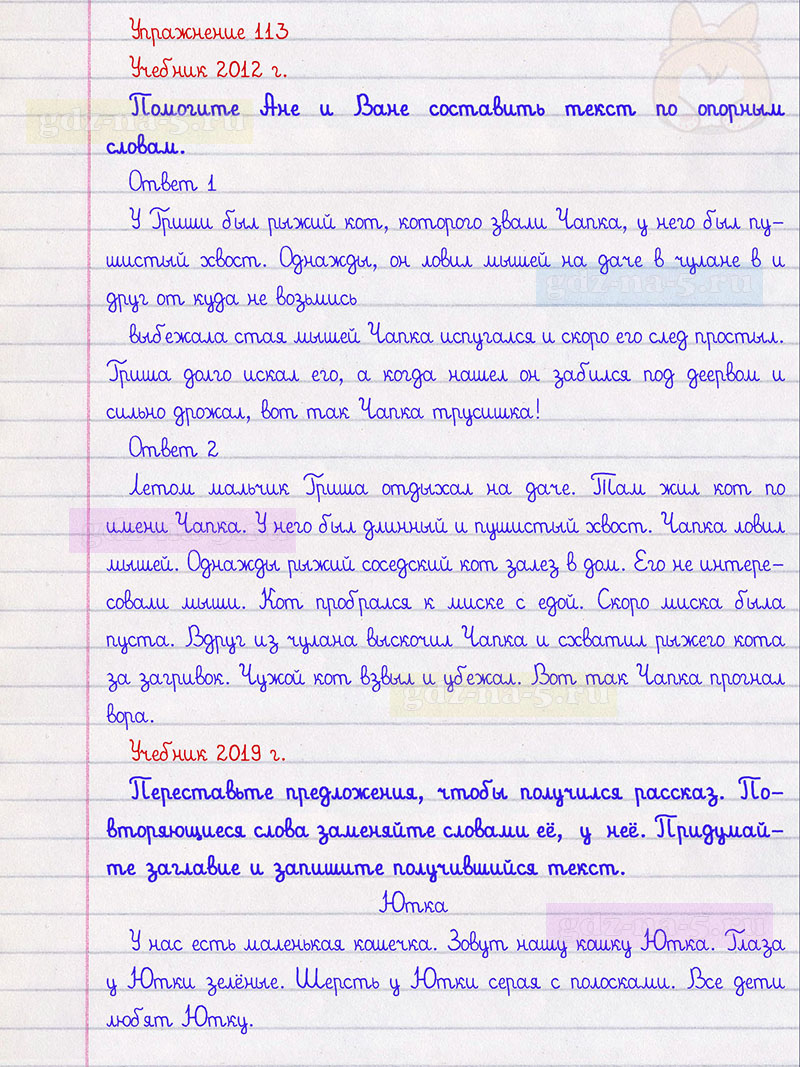 Упражнение 113
Учебник 2012 г.
gdz-na-5.ru
Помогите Ане и Ване составить текст по опорным
словам.
Ответ 1
У Гриши был рыжий кот, которого звали Чапка, у него был пу-
шистый хвост. Однажды, он ловил мышей на даче в чулане в и
gdz-na-5.ru
друг от куда не возьмись
выбежала стая мышей Чапка испугался и скоро его след простыл.
Гриша долго искал его, а когда нашел он забился под деервом и
сильно дрожал, вот так Чапка трусишка!
Ответ 2
Летом мальчик Гриша отдыхал на даче. Там жил кот по
имени Чапка. У него был длинный и пушистый хвост. Чапка ловил
gdz-na-5.ru
мышей. Однажды рыжий соседский кот залез в дом. Его не интере-
совали мыши. Кот пробрался к миске с едой. Скоро миска была
пуста. Вдруг из чулана выскочил Чапка и схватил рыжего кота
за загривок. Чужой кот взвыл и убежал. Вот так Чапка прогнал
gdz-na-5.ru
вора.
Учебник 2019 г.
Переставьте предложения, чтобы получился рассказ. По-
вторяющиеся слова заменяйте словами её, у неё. Придумай-
те заглавие и запишите получившийся текст.
Ютка
gdz-na-5.ru
У нас есть маленькая кошечка. Зовут нашу кошку Ютка. Глаза
у Ютки зелёные. Шерсть у Ютки серая с полосками. Все дети
любят Ютку.